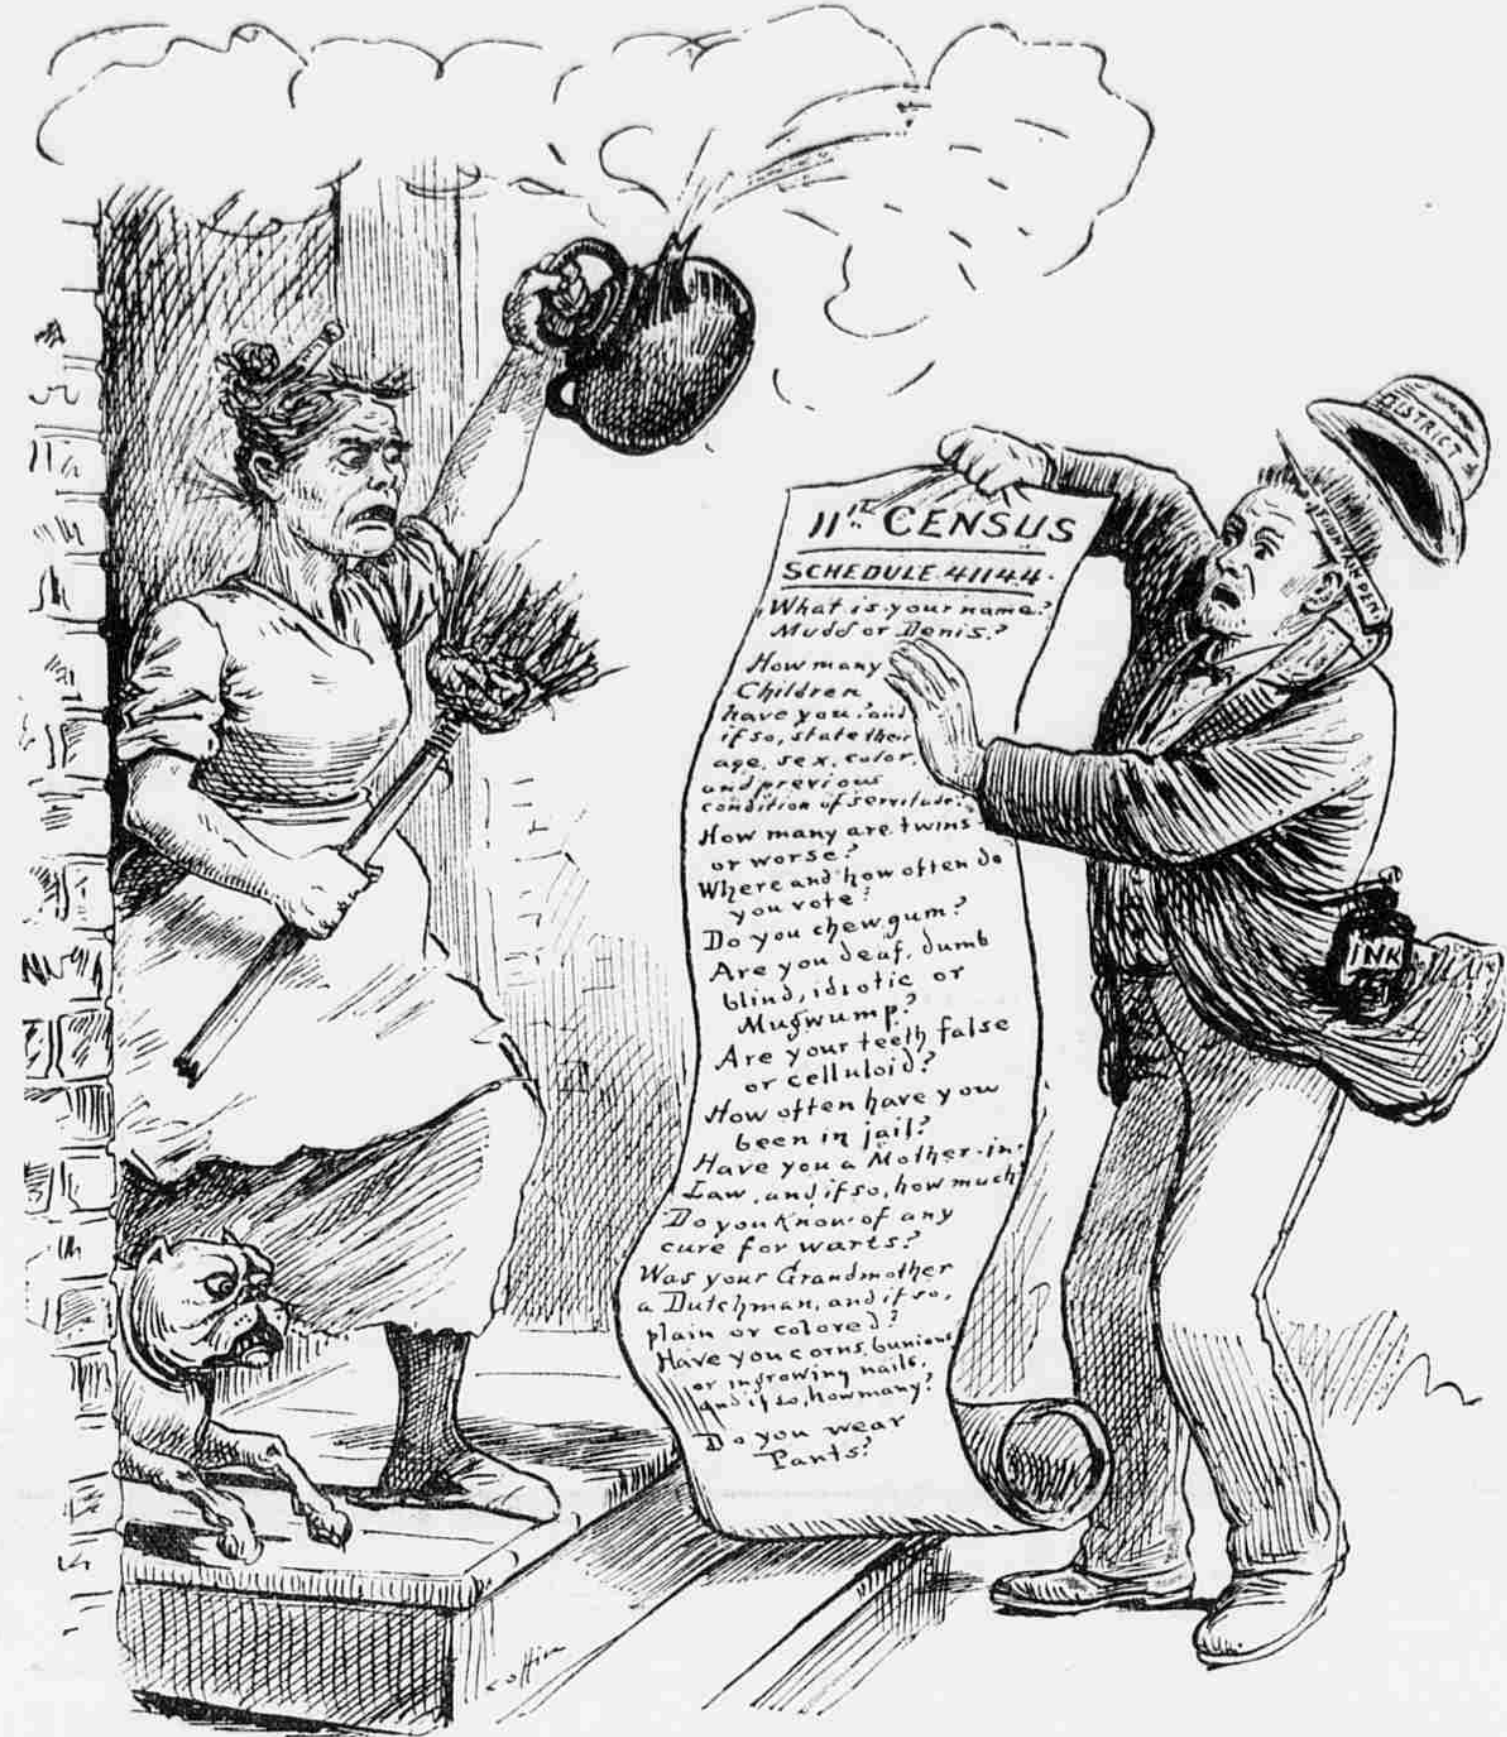 DISTRICT
FOUNTAIN PEN
11th CENSUS
SCHEDULE 41144.
What is your name?
Mudd or Denis?
How many
Children
have you? and
if so, state their
age, sex, color,
and previous
condition of servitude?
How many are twins
or worse?
Where and how often do
you vote?
Do you chew gum?
Are you deaf, dumb
blind, idiotic or
Mugwump?
Are your teeth false
or celluloid?
How often have you
been in jail?
Have you a Mother-in-
Law, and if so, how much?
Do you know of any
cure for warts?
Was your Grandmother
a Dutchman, and if so,
plain or colored?
Have you corns, bunions
or ingrowing nails,
and if so, how many?
Do you wear
Pants?
INK
coffin